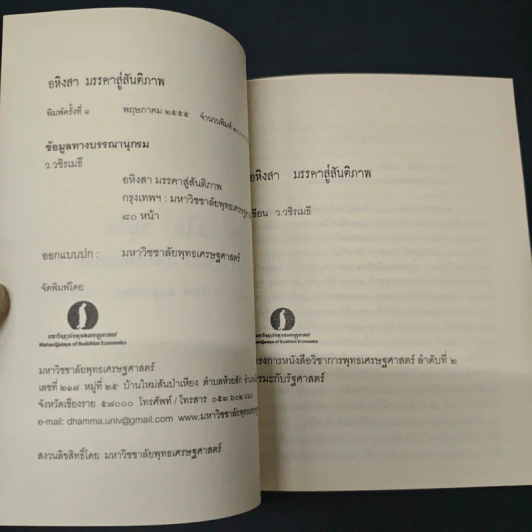 อหิงสา มรรคาสู่สันติภาพ
พิมพ์ครั้งที่ ๑ พฤษภาคม ๒๕๕๕ จำนวนพิมพ์
ข้อมูลทางบรรณานุกรม
ว.วชิรเมธี
อหิงสา มรรคาสู่สันติภาพ
กรุงเทพฯ : มหาวิชชาลัยพุทธเศรษฐ
๘๐ หน้า
ออกแบบปก : มหาวิชชาลัยพุทธเศรษฐศาสตร์
จัดพิมพ์โดย
มหาวิชชาลัยพุทธเศรษฐศาสตร์
Mahavijjalaya of Buddhist Economics
มหาวิชชาลัยพุทธเศรษฐศาสตร์
เลขที่ ๒๑๗ หมู่ที่ ๒๕ บ้านใหม่สันป่าเหียง ตำบลห้วยสัก
จังหวัดเชียงราย ๕๗๐๐๐ โทรศัพท์ / โทรสาร ๐๕๓ ๖๐๒
e-mail: dhamma.univ@gmail.com www.มหาวิชชาลัยพุทธเศรษฐ
สงวนลิขสิทธิ์โดย มหาวิชชาลัยพุทธเศรษฐศาสตร์
อหิงสา มรรคาสู่สันติภาพ
เขียน ว.วชิรเมธี
มหาวิชชาลัยพุทธเศรษฐศาสตร์
Mahavijjalaya of Buddhist Economics
รงการหนังสือวิชาการพุทธเศรษฐศาสตร์ ลำดับที่ ๒
รมะกับรัฐศาสตร์